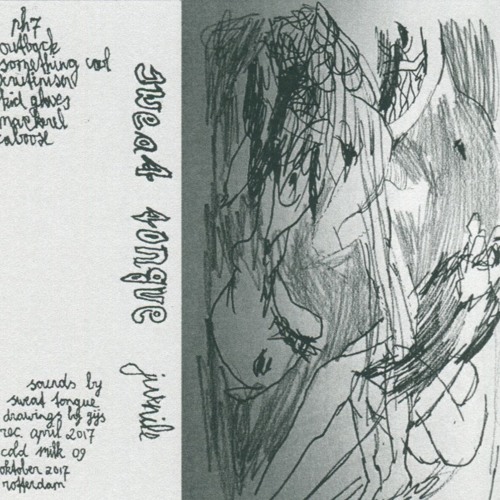 ph7
outback
something cool
scrutinism
kid gloves
mackarel
caboose
sweat tongue
juvnile
sounds by
sweat tongue
drawings by gijs
rec. april 2017
cold milk 09
oktober 2017
rotterdam